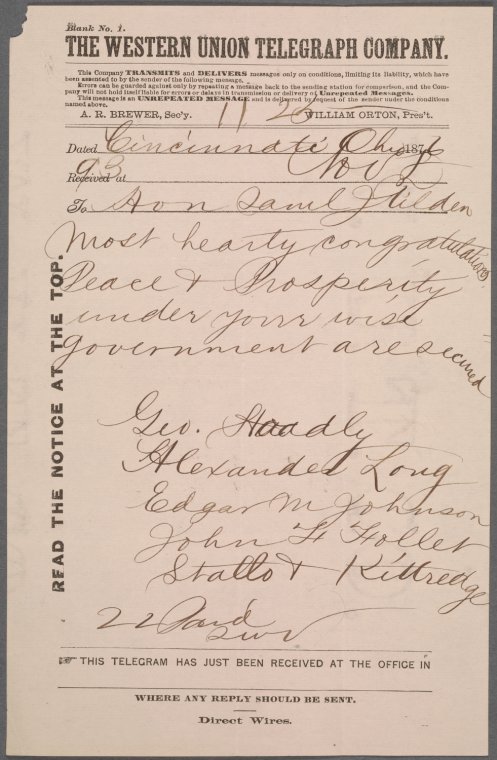 Blank No. 1.
THE WESTERN UNION TELEGRAPH COMPANY.
This Company TRANSMITS and DELIVERS messages only on conditions, limiting its liability, which have
been assented to by the sender of the following message.
Errors can be guarded against only by repeating a message back to the sending station for comparison, and the Com-
pany will not hold itself liable for errors or delays in transmission or delivery of Unrepeated Messages.
This message is an UNREPEATED MESSAGE and is delivered by request of the sender under the conditions
named above.
A. R. BREWER, Sec'y. 11 WILLIAM ORTON, Pres't.
Dated Cincinnati Ohio 1876
Received at 93 Nov
To Hon Saml J Tilden
Most hearty congratulations,
Peace & Prosperity
under your wise
government are secured
Geo. Hoadly
Alexander Long
Edgar M Johnson
John F Follet
Stallo & Kittredge
22 Paid
READ THE NOTICE AT THE TOP.
☞ THIS TELEGRAM HAS JUST BEEN RECEIVED AT THE OFFICE IN
WHERE ANY REPLY SHOULD BE SENT.
Direct Wires.